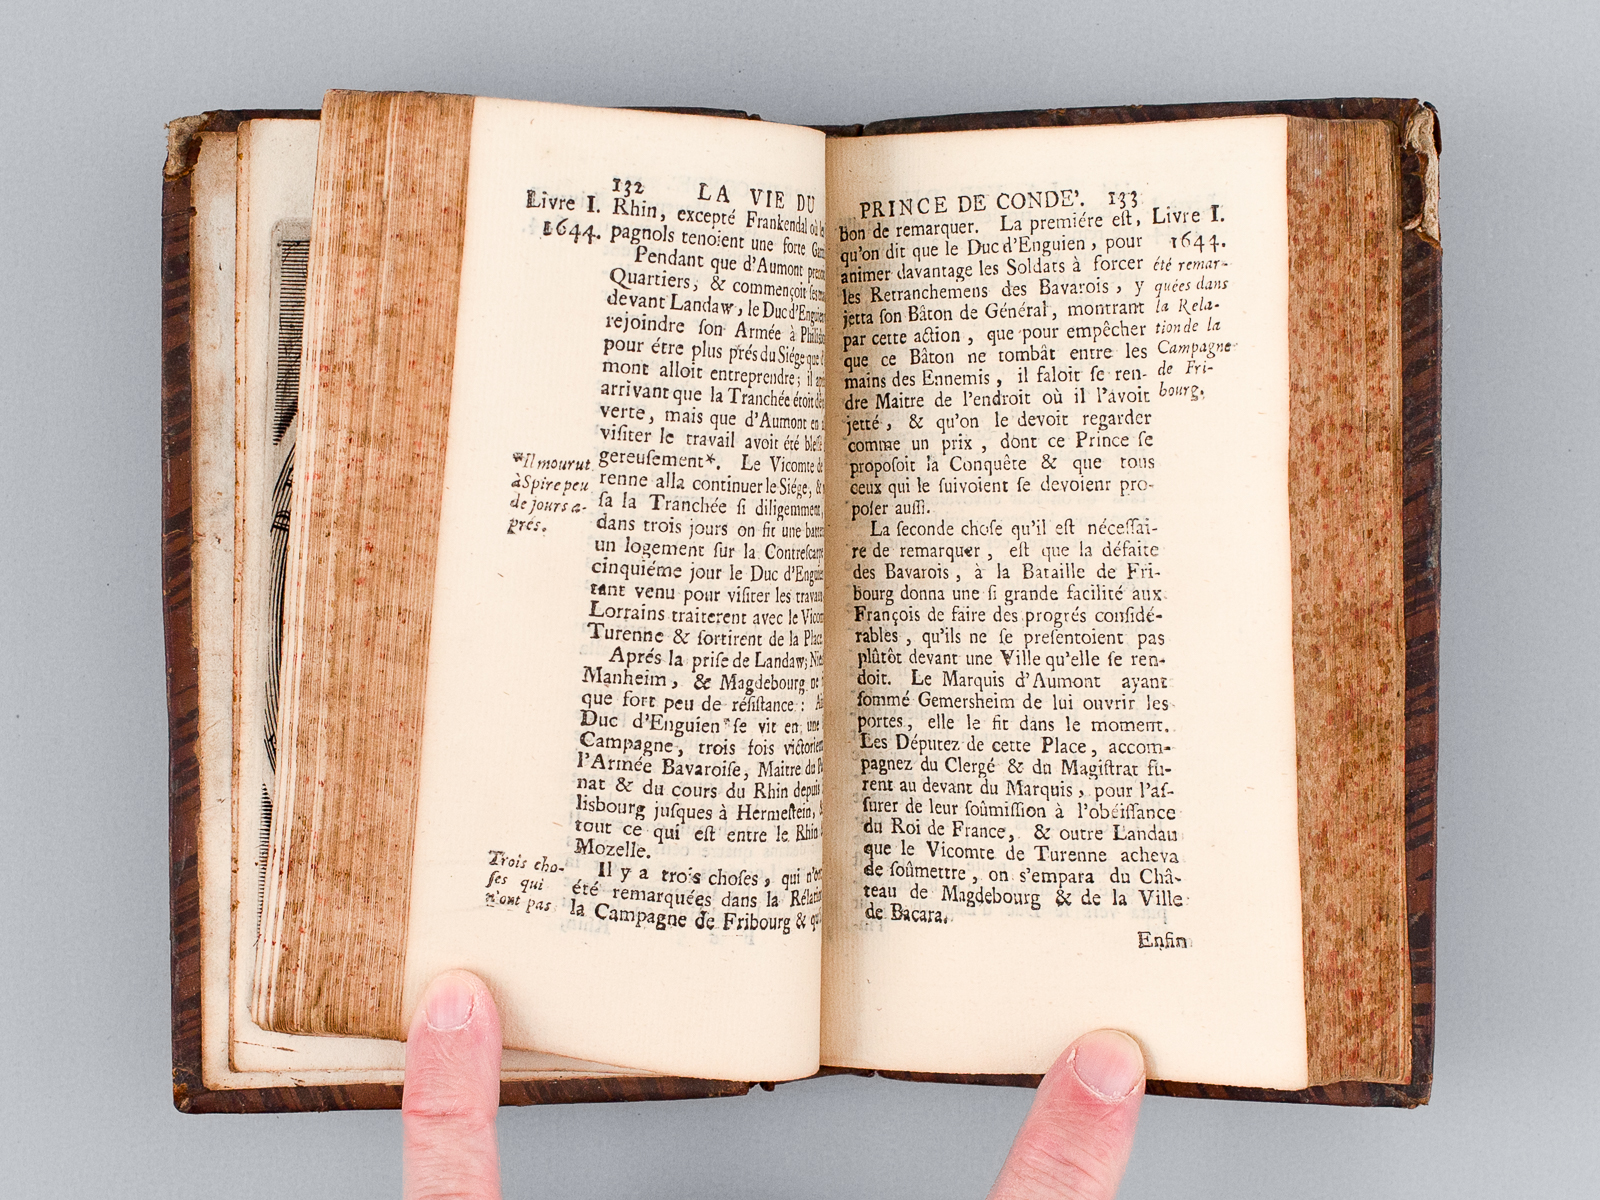 132 LA VIE DU
Livre I.
1644.
Rhin, excepté Frankendal où les
pagnols tenoient une forte
Pendant que d'Aumont
Quartiers, & commençoit
devant Landaw, le Duc d'Enguien
rejoindre ſon Armée à
pour étre plus prés du Siége que
mont alloit entreprendre; il
arrivant que la Tranchée étoit
verte, mais que d'Aumont en
viſiter le travail avoit été bleſſé
gereuſement*. Le Vicomte de
renne alla continuer le Siége, &
ſa la Tranchée ſi diligemment,
dans trois jours on fit une
un logement ſur la Contreſcarpe
cinquiéme jour le Duc d'Enguien
tant venu pour viſiter les
Lorrains traiterent avec le
Turenne & ſortirent de la Place.
*Il mourut
à Spire peu
de jours a-
prés.
Aprés la priſe de Landaw;
Manheim, & Magdebourg
que fort peu de réſiſtance:
Duc d'Enguien ſe vit en une
Campagne, trois fois victorieux
l'Armée Bavaroiſe, Maitre du
nat & du cours du Rhin depuis
lisbourg juſques à Hermeſtein,
tout ce qui eſt entre le Rhin
Mozelle.
Il y a trois choſes, qui
été remarquées dans la
la Campagne de Fribourg &
Trois cho-
ſes qui
n'ont pas
PRINCE DE CONDE'. 133
bon de remarquer. La premiére eſt,
qu'on dit que le Duc d'Enguien, pour
animer davantage les Soldats à forcer
les Retranchemens des Bavarois, y
jetta ſon Bâton de Général, montrant
par cette action, que pour empêcher
que ce Bâton ne tombât entre les
mains des Ennemis, il faloit ſe ren-
dre Maitre de l'endroit où il l'avoit
jetté, & qu'on le devoit regarder
comme un prix, dont ce Prince ſe
propoſoit la Conquête & que tous
ceux qui le ſuivoient ſe devoienr pro-
poſer auſſi.
Livre I.
1644.
été remar-
quées dans
la Rela-
tion de la
Campagne
de Fri-
bourg.
La ſeconde choſe qu'il eſt néceſſai-
re de remarquer, eſt que la défaite
des Bavarois, à la Bataille de Fri-
bourg donna une ſi grande facilité aux
François de faire des progrés conſidé-
rables, qu'ils ne ſe preſentoient pas
plûtôt devant une Ville qu'elle ſe ren-
doit. Le Marquis d'Aumont ayant
ſommé Gemersheim de lui ouvrir les
portes, elle le fit dans le moment.
Les Députez de cette Place, accom-
pagnez du Clergé & dn Magiſtrat fu-
rent au devant du Marquis, pour l'aſ-
ſurer de leur ſoûmiſſion à l'obéiſſance
du Roi de France, & outre Landau
que le Vicomte de Turenne acheva
de ſoûmettre, on s'empara du Châ-
teau de Magdebourg & de la Ville
de Bacara.
Enfin